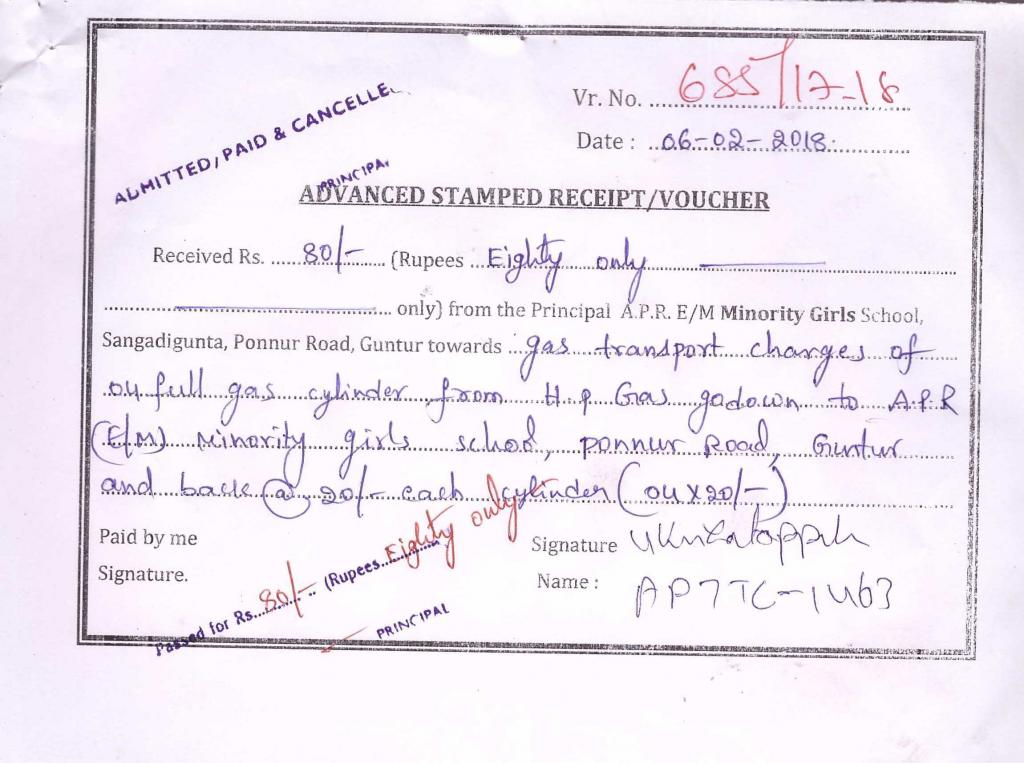 Vr. No. 685/17-18
Date : 06-02-2018
ADMITTED, PAID & CANCELLE
PRINCIPA
ADVANCED STAMPED RECEIPT/VOUCHER
Received Rs. 80/- (Rupees Eighty only
only) from the Principal A.P.R. E/M Minority Girls School,
Sangadigunta, Ponnur Road, Guntur towards gas transport charges of
04 full gas cylinder from H.P Gas godown to A.P.R
(E/M) Minority girls school, ponnur Road, Guntur
and back @ 20/- each cylinder (04X20/-)
Paid by me
Signature.
Signature
Name : AP7TC-1463
Passed for Rs. 80/- (Rupees Eighty only
PRINCIPAL